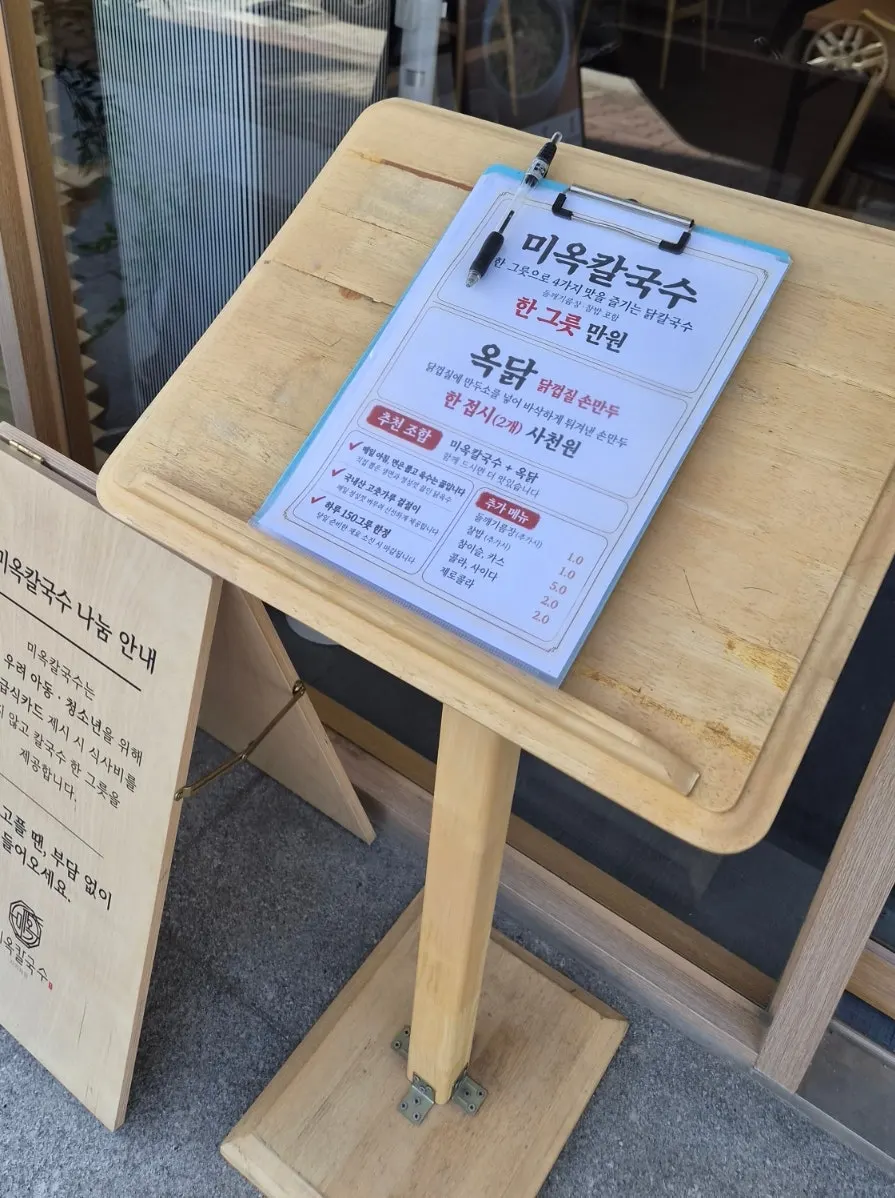 미옥칼국수
한 그릇으로 4가지 맛을 즐기는 닭칼국수
들깨기름장·찰밥 포함
한 그릇 만원
옥닭 닭껍질 손만두
닭껍질에 만두소를 넣어 바삭하게 튀겨낸 손만두
한 접시(2개) 사천원
추천 조합 미옥칼국수 + 옥닭
함께 드시면 더 맛있습니다
매일 아침, 면은 뽑고 육수는 끓입니다
직접 뽑은 생면과 정성껏 끓인 닭육수
국내산 고춧가루 겉절이
매일 정성껏 버무려 신선하게 제공합니다
하루 150그릇 한정
당일 준비한 재료 소진 시 마감됩니다
추가 메뉴
들깨기름장 (추가시) 1.0
찰밥 (추가시) 1.0
참이슬, 카스 5.0
콜라, 사이다 2.0
제로콜라 2.0
미옥칼국수 나눔 안내
미옥칼국수는
우려 아동·청소년을 위해
급식카드 제시 시 식사비를
않고 칼국수 한 그릇을
제공합니다.
고플 땐, 부담 없이
들어오세요.
미옥칼국수